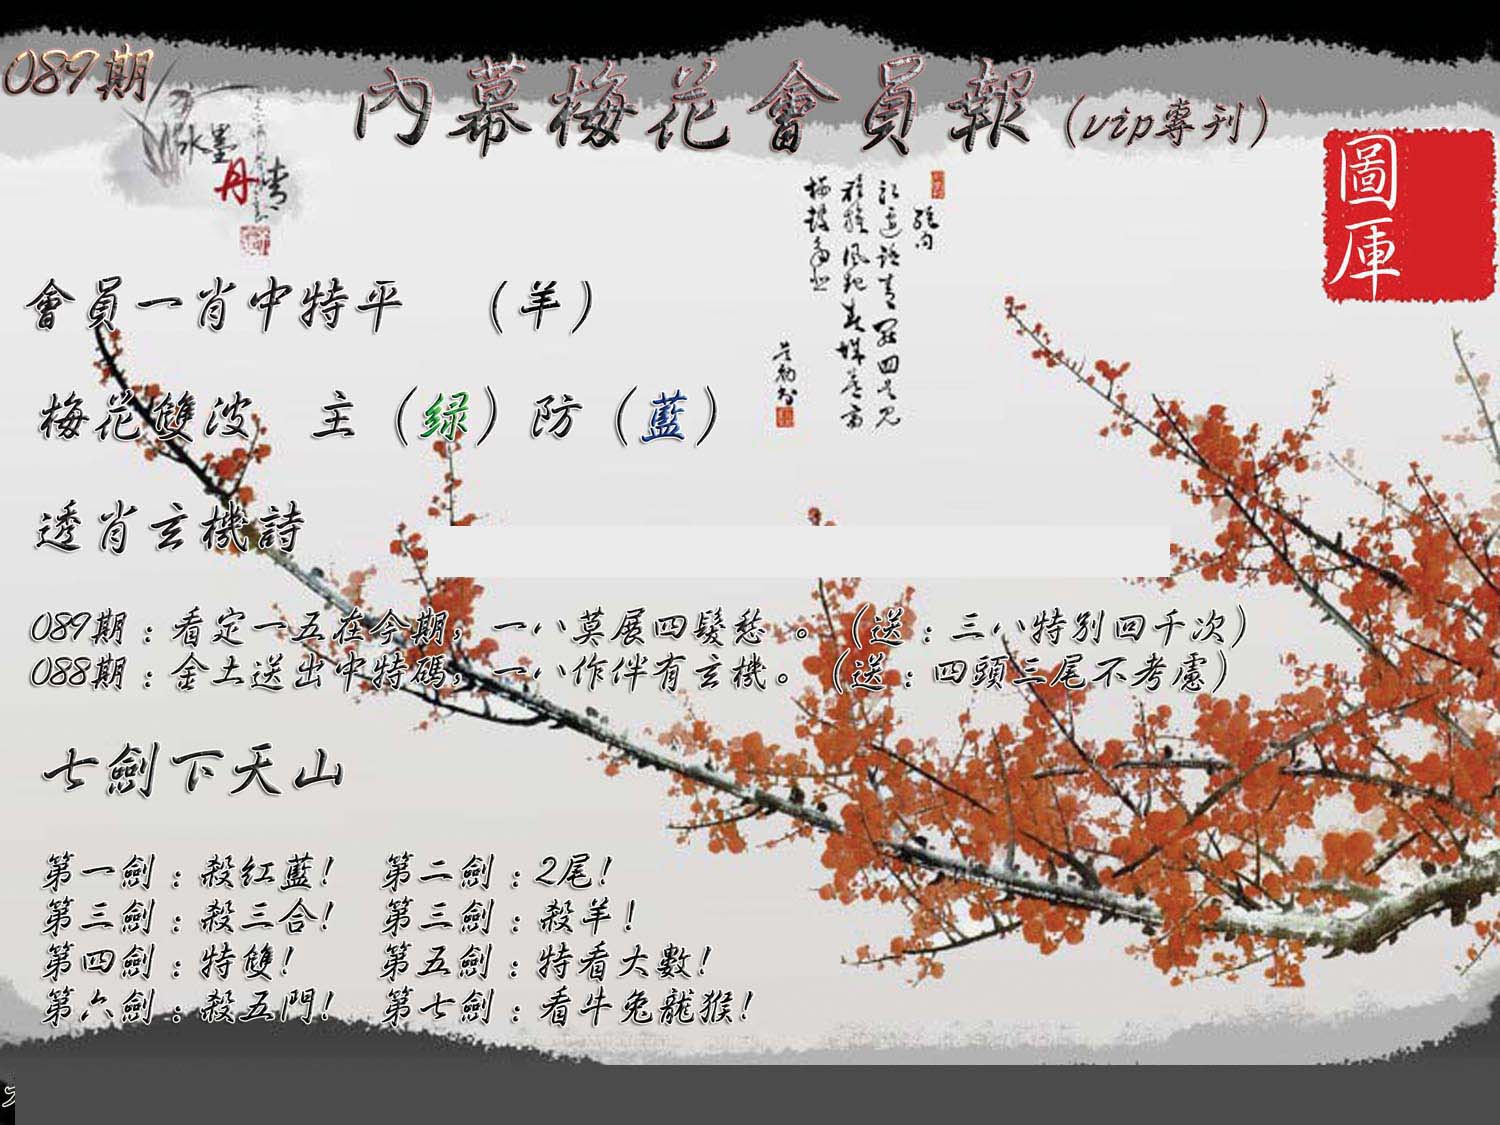 089期
內幕梅花會員報(vip專刊)
水墨
丹青
圖庫
會員一肖中特平 (羊)
梅花雙波 主(绿)防(藍)
透肖玄機詩
089期:看定一五在今期,一八莫展四鬢愁。(送:三八特別回千次)
088期:金土送出中特碼,一八作伴有玄機。(送:四頭三尾不考慮)
七劍下天山
第一劍:殺红藍! 第二劍:2尾!
第三劍:殺三合! 第三劍:殺羊!
第四劍:特雙! 第五劍:特看大數!
第六劍:殺五門! 第七劍:看牛兔龍猴!